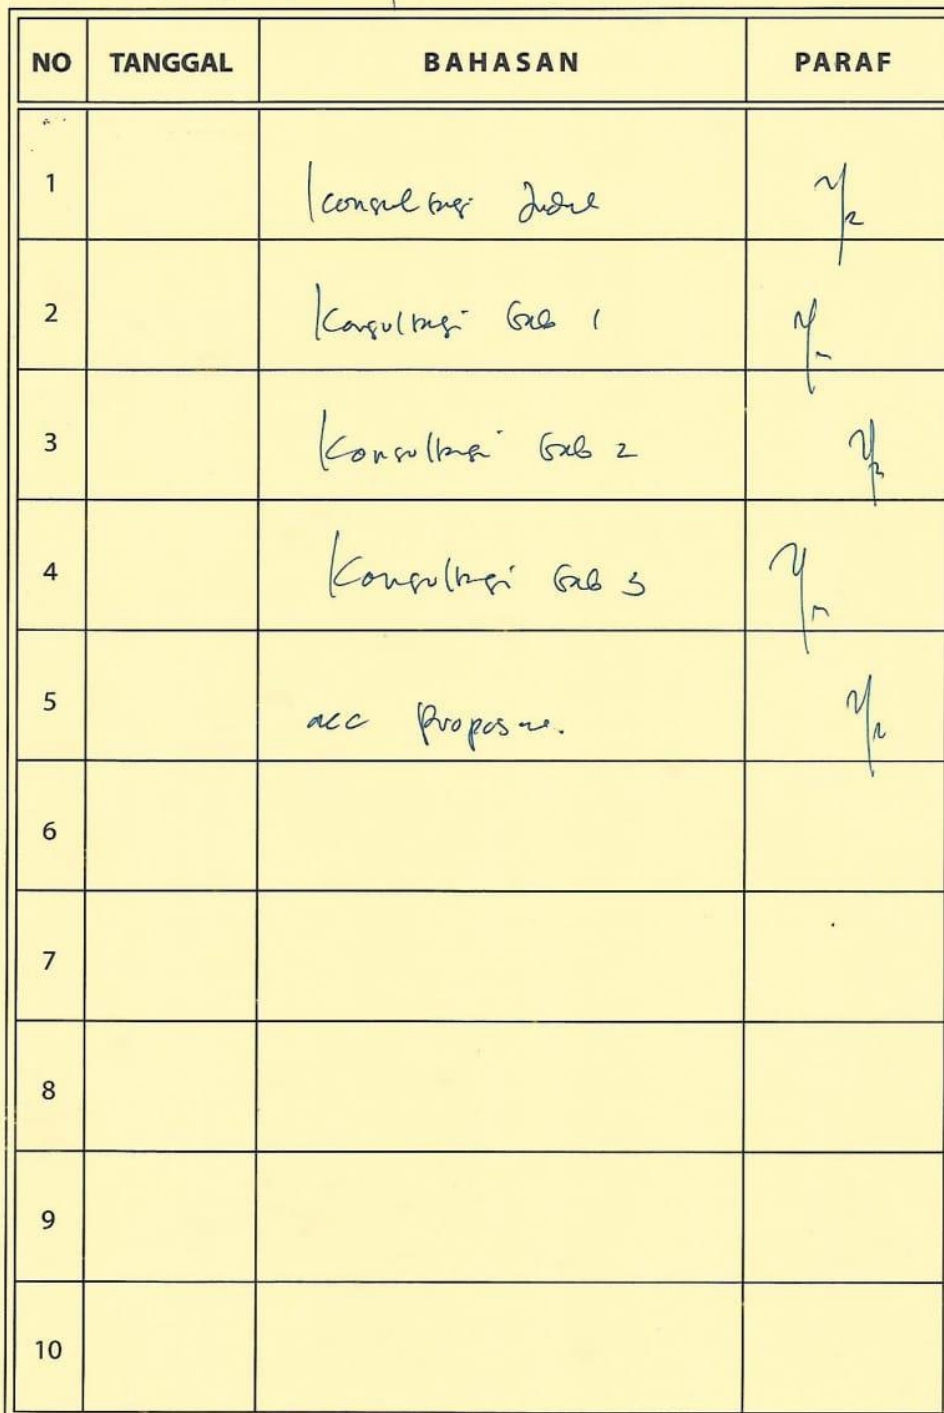 NO TANGGAL BAHASAN PARAF
1 Konsultasi Judul
2 Konsultasi Bab 1
3 Konsultasi Bab 2
4 Konsultasi Bab 3
5 acc Proposal.
6
7
8
9
10